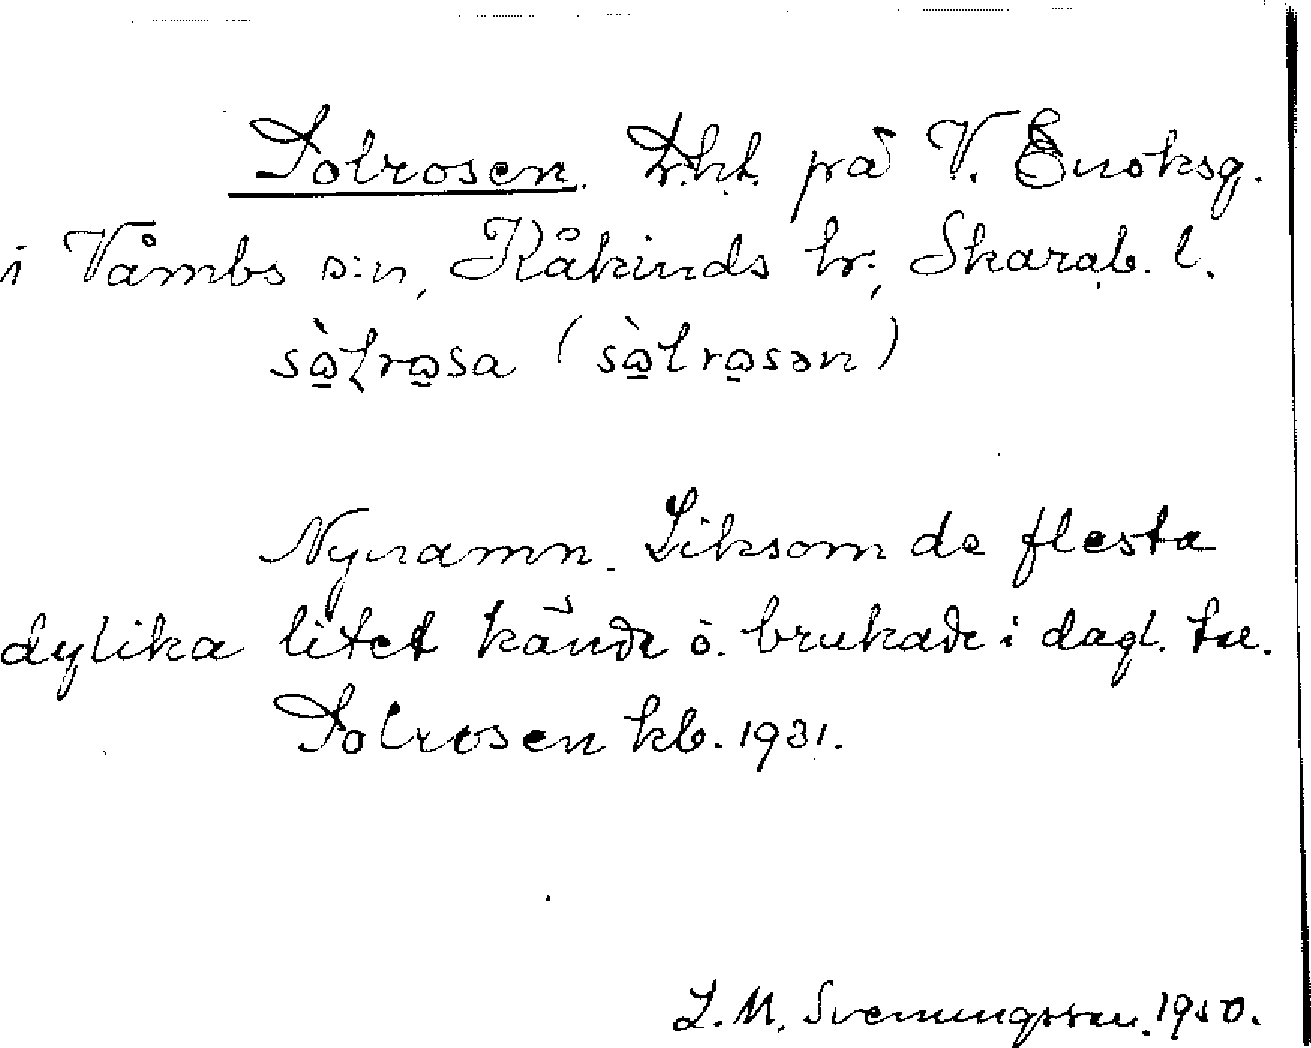 Solrosen. Lht. på V. Enoksg.
i Våmbs s:n, Kåkinds hr., Skarab. l.
sòlrosa (sòlrosən)
Nynamn. Liksom de flesta
dylika litet kände o. brukade i dagl. tal.
Solrosen kb. 1931.
L. M. Svenungsson. 1950.